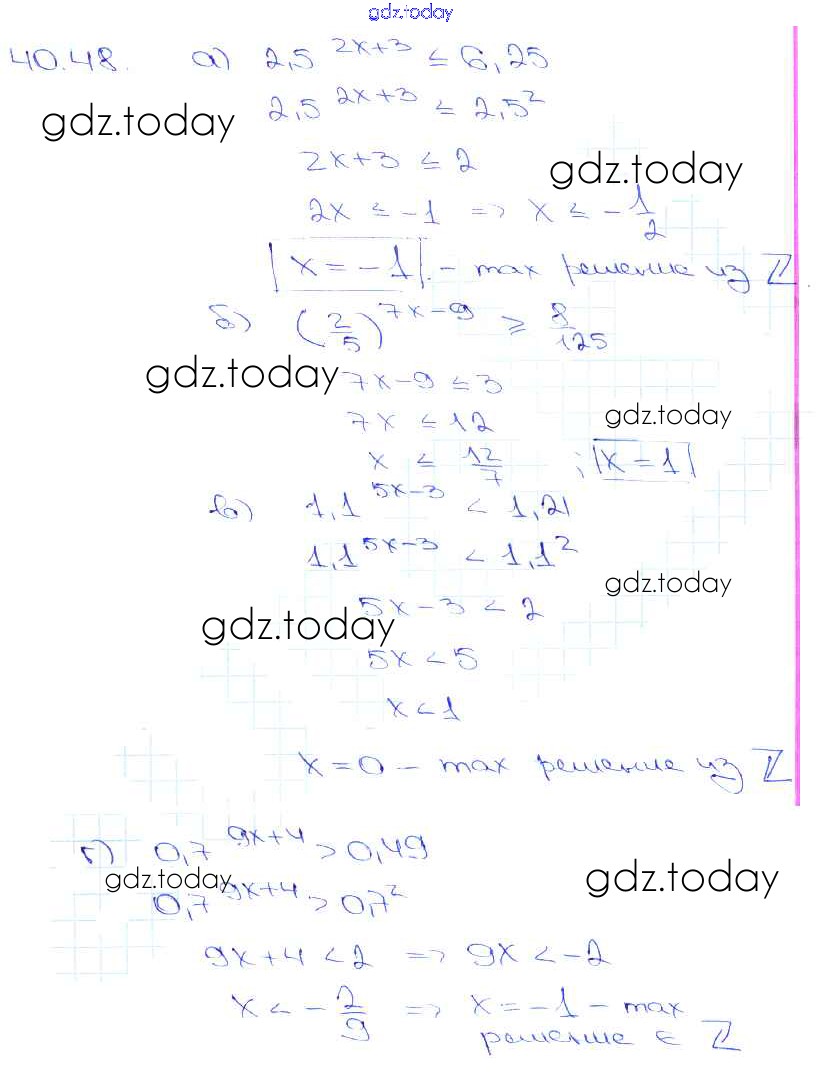 gdz.today
40.48. а) 2,5^(2x+3) ≤ 6,25
2,5^(2x+3) ≤ 2,5²
gdz.today
2x+3 ≤ 2
gdz.today
2x ≤ -1 => x ≤ -1/2
|x = -1|. - max решение из ℤ
б) (2/5)^(7x-9) ≥ 8/125
gdz.today 7x-9 ≤ 3
7x ≤ 12 gdz.today
x ≤ 12/7 ; |x = 1|
в) 1,1^(5x-3) < 1,21
1,1^(5x-3) < 1,1²
5x-3 < 2 gdz.today
gdz.today
5x < 5
x < 1
x = 0 - max решение из ℤ
г) 0,7^(9x+4) > 0,49
gdz.today gdz.today
0,7^(9x+4) > 0,7²
9x+4 < 2 => 9x < -2
x < -2/9 => x = -1 - max
решение ∈ ℤ